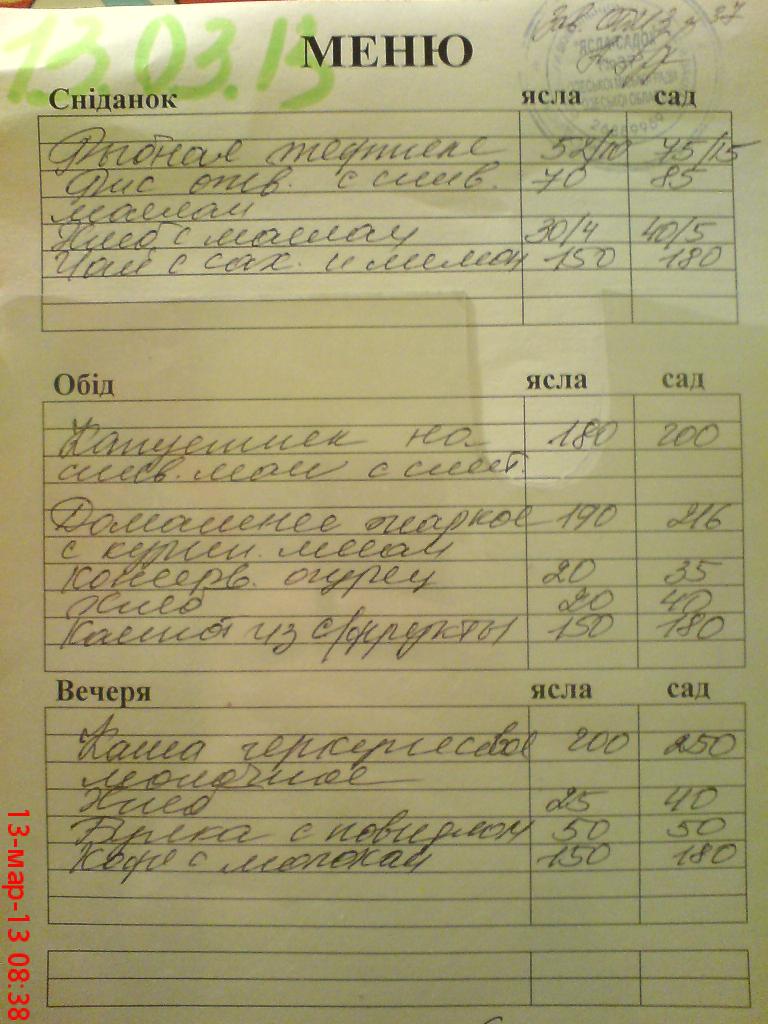 13.03.13
Зав. 37
МЕНЮ
"ЯСЛА-САДОК
Сніданок ясла сад
Рыбная тефтеле 75/15
Рис отв. с слив. 70 85
маслом
Хлеб с маслом 30/4 40/5
Чай с сах. и лимон 150 180
Обід ясла сад
Капустняк на 180 200
мяс с смет.
Домашнее жаркое 190 216
с курин. мясом
Консерв. огурец 20 35
Хлеб 20 40
Компот из с/фрукты 150 180
Вечеря ясла сад
Каша геркулесовая 200 250
молочная
Хлеб 25 40
Булка с повидлом 50 50
Кофе с молоком 150 180
13-мар-13 08:38